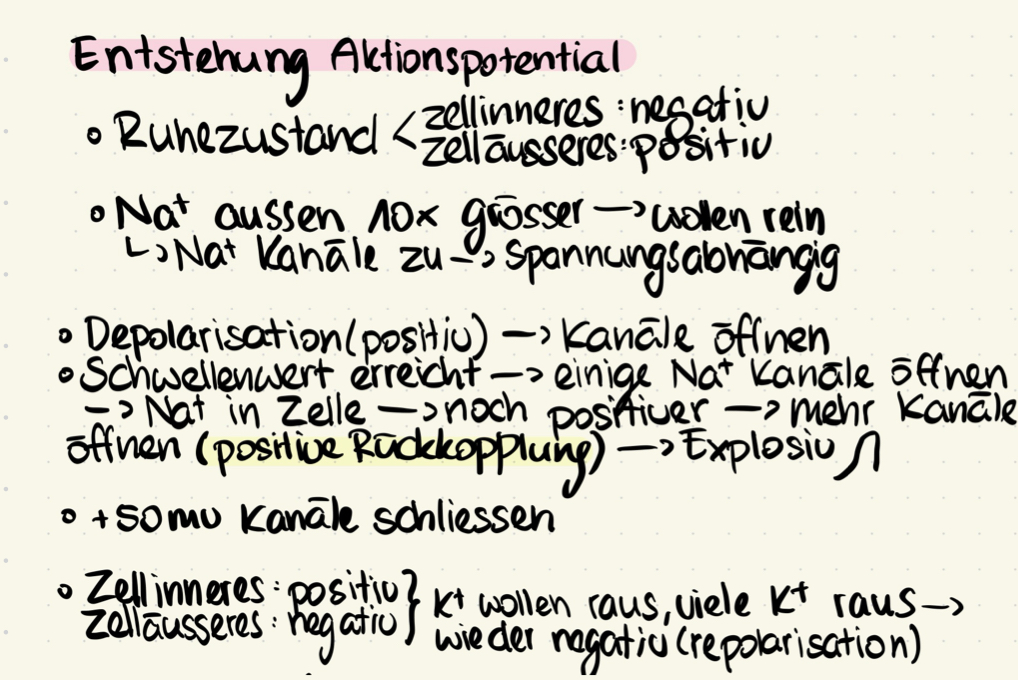 Entstehung Aktionspotential
• Ruhezustand < zellinneres : negativ
zelläusseres : positiv
• Na⁺ aussen 10x grösser —> wollen rein
↳ Na⁺ Kanäle zu —> Spannungsabhängig
• Depolarisation (positiv) —> Kanäle öffnen
• Schwellenwert erreicht —> einige Na⁺ Kanäle öffnen
—> Na⁺ in Zelle —> noch positiver —> mehr Kanäle
öffnen (positive Rückkopplung) —> Explosiv
• +50mv Kanäle schliessen
• Zellinneres : positiv
Zelläusseres : negativ
} K⁺ wollen raus, viele K⁺ raus —>
wieder negativ (repolarisation)